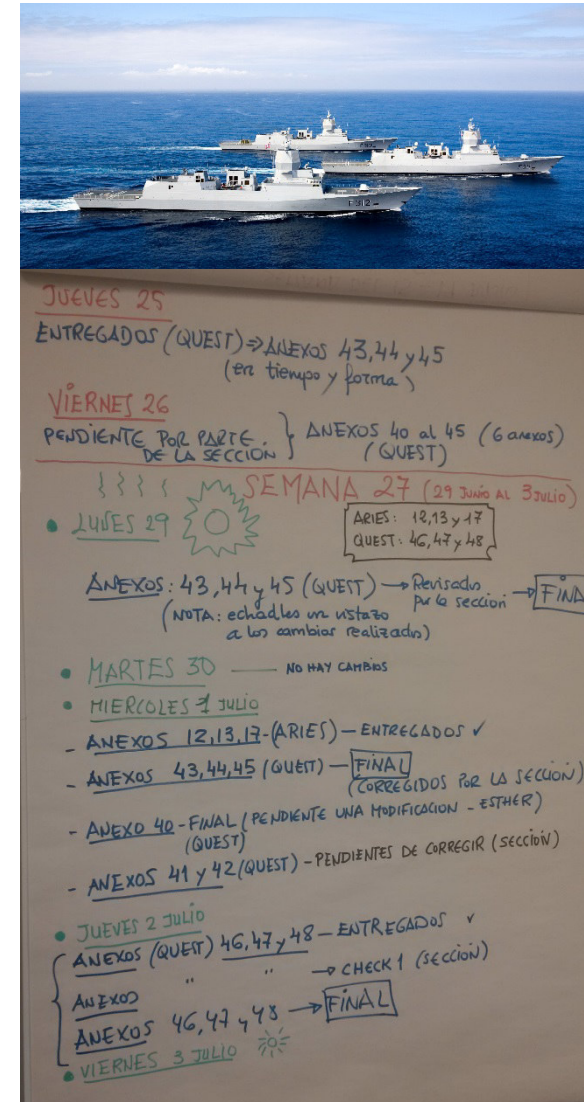 F312
JUEVES 25
ENTREGADOS (QUEST) ⇒ ANEXOS 43,44 y 45
(en tiempo y forma)
VIERNES 26
PENDIENTE POR PARTE DE LA SECCIÓN } ANEXOS 40 al 45 (6 anexos)
(QUEST)
SEMANA 27 (29 JUNIO AL 3 JULIO)
• LUNES 29
ARIES: 12,13 y 17
QUEST: 46,47 y 48
ANEXOS: 43,44 y 45 (QUEST) → Revisados por la sección → FINAL
(NOTA: echadles un vistazo
a los cambios realizados)
• MARTES 30 — NO HAY CAMBIOS
• MIERCOLES 1 JULIO
- ANEXOS 12,13,17-(ARIES) — ENTREGADOS ✓
- ANEXOS 43,44,45 (QUEST) — FINAL
(CORREGIDOS POR LA SECCIÓN)
- ANEXO 40 - FINAL (PENDIENTE UNA MODIFICACION - ESTHER)
(QUEST)
- ANEXOS 41 y 42 (QUEST) - PENDIENTES DE CORREGIR (SECCIÓN)
• JUEVES 2 JULIO
ANEXOS (QUEST) 46,47 y 48 — ENTREGADOS ✓
ANEXOS " " → CHECK 1 (SECCIÓN)
ANEXOS 46,47 y 48 → FINAL
• VIERNES 3 JULIO